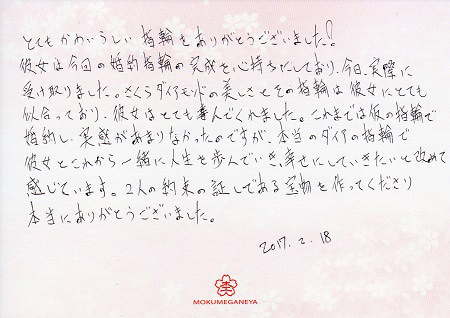 とてもかわいらしい指輪をありがとうございました!
彼女は今回の婚約指輪の完成を心待ちにしており、今日、実際に
受け取りました。さくらダイアモンドの美しさとその指輪は彼女にとても
似合っており、彼女はとても喜んでくれました。これまでは仮の指輪で
婚約し、実感があまりなかったのですが、本当のダイアの指輪で
彼女とこれから一緒に人生を歩んでいき、幸せにしていきたいと改めて
感じています。2人の約束の証しである宝物を作ってくださり
本当にありがとうございました。
2017. 2. 18
MOKUMEGANEYA